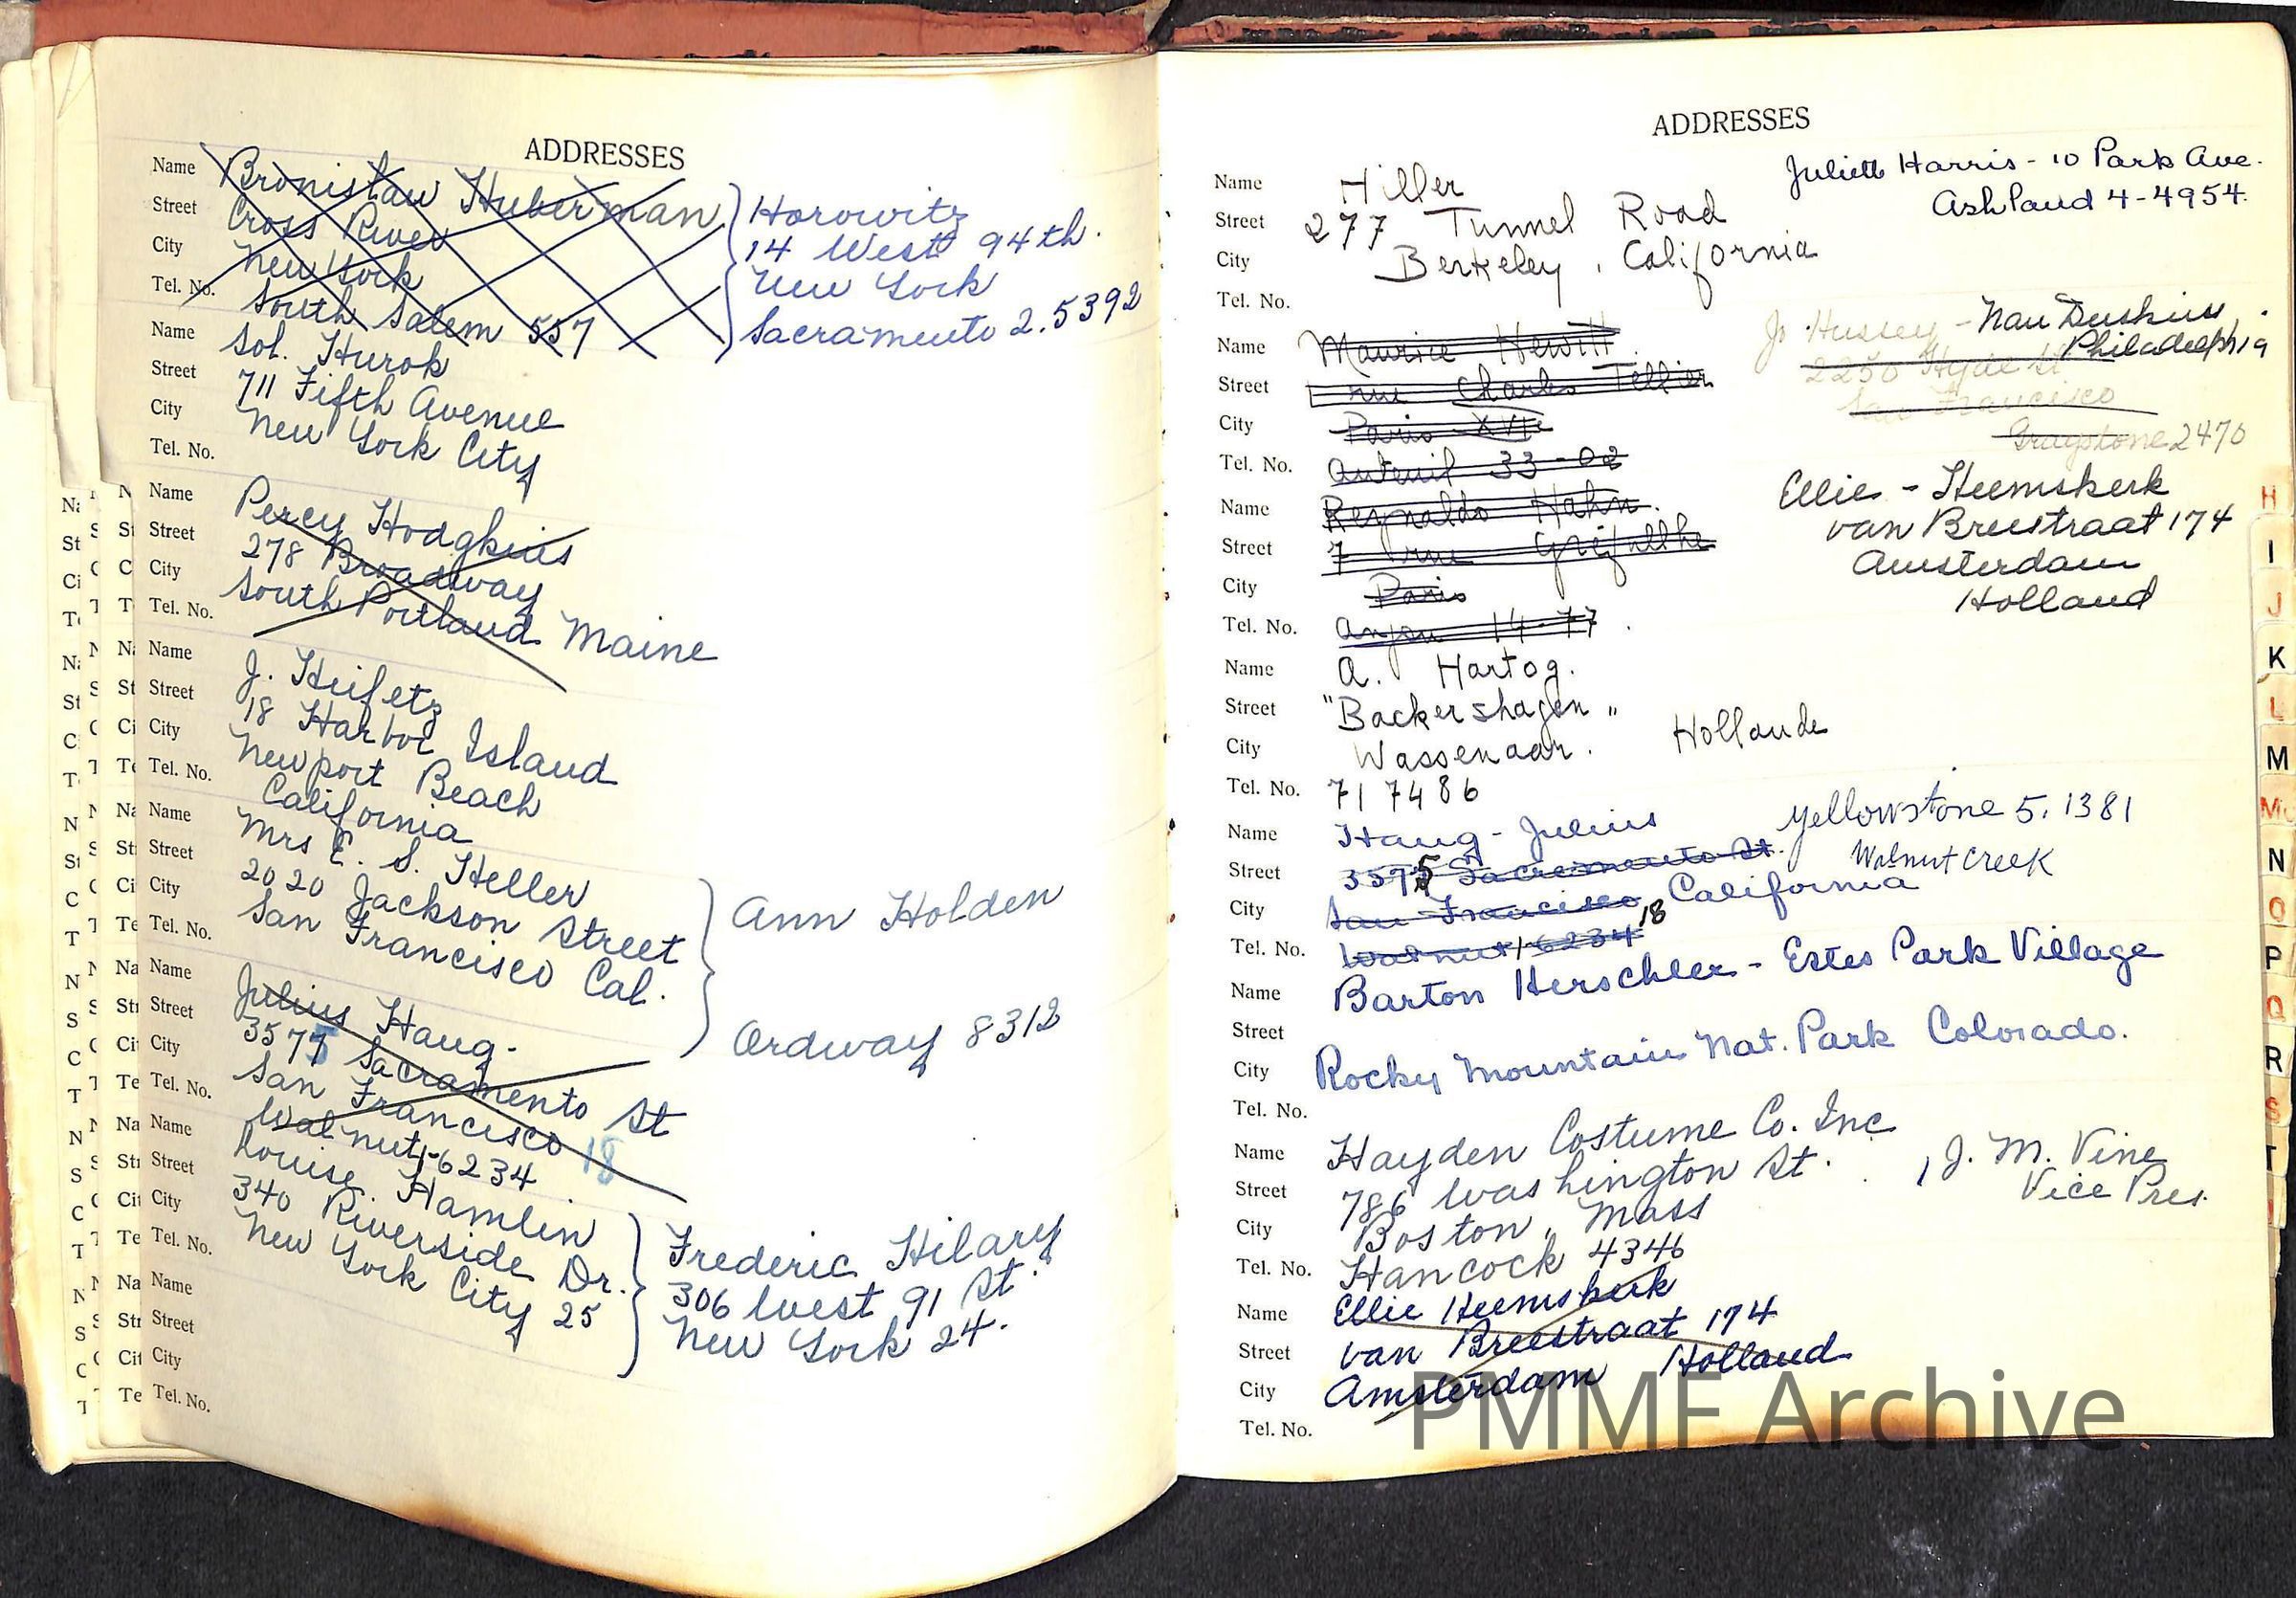 ADDRESSES
Name Bronislaw Huberman
Street Cross River
City New York
Tel. No. South Salem 557
Horowitz
14 West 94th.
New York
Sacramento 2.5392
Name Sol. Hurok
Street 711 Fifth Avenue
City New York City
Tel. No.
Name Percy Hodgkins
Street 278 Broadway
City South Portland Maine
Tel. No.
Name J. Heifetz
Street 18 Harbor Island
City Newport Beach
Tel. No. California
Name Mrs E. S. Heller
Street 2020 Jackson Street
City San Francisco Cal.
Tel. No.
Ann Holden
Ordway 8312
Name Julius Haug.
Street 3575 Sacramento St
City San Francisco 18
Tel. No. Walnut 1-6234
Name Louise Hamlin
Street 340 Riverside Dr.
City New York City 25
Tel. No.
Frederic Hilary
306 West 91 St.
New York 24.
Name
Street
City
Tel. No.
ADDRESSES
Juliette Harris - 10 Park Ave.
Ashland 4-4954.
Name Hiller
Street 277 Tunnel Road
City Berkeley, California
Tel. No.
Jo Hussey - Nan Duskin,
Philadelphia
2250 Hyde St
San Francisco
Graystone 2470
Name Maurice Hewitt
Street 1 rue Charles Tellier
City Paris XVIe
Tel. No. Auteuil 33-02
Name Reynaldo Hahn.
Street 7 rue
City Paris
Tel. No. Anjou 14-77.
Ellie - Heemskerk
van Breestraat 174
Amsterdam
Holland
Name A. Hartog.
Street "Backershagen"
City Wassenaar. Hollande
Tel. No. 717486
Name Haug - Julius Yellowstone 5.1381
Street 3575 Sacramento St. Walnut Creek
City San Francisco 18 California
Tel. No. Walnut 1-6234
Name Barton Herschler - Estes Park Village
Street
City Rocky Mountain Nat. Park Colorado.
Tel. No.
Name Hayden Costume Co. Inc
Street 786 Washington St.
City Boston, Mass
Tel. No. Hancock 4346
J. M. Vine
Vice Pres.
Name Ellie Heemskerk
Street van Breestraat 174
City Amsterdam Holland
Tel. No.
H
I
J
K
L
M
Mc
N
O
P
Q
R
S
T
PMMF Archive